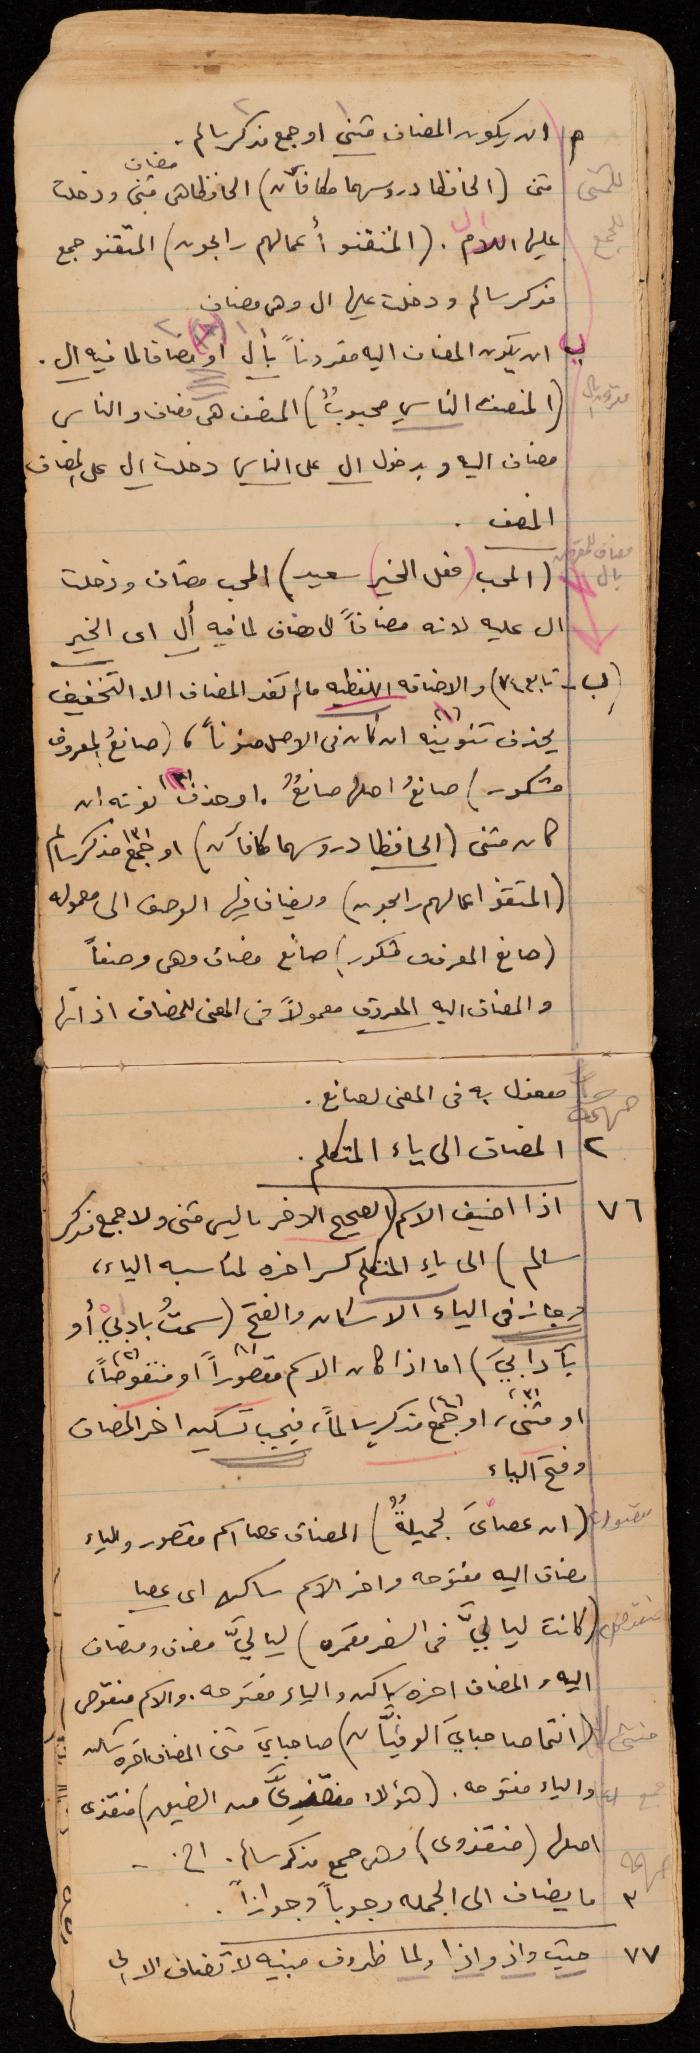 م ان يكون المضاف مثنى او جمع مذكر سالم.
مثنى (الحافظا دروسهما مكافآن) الحافظا هي مثنى مضاف ودخلت
عليها اللام. (المتقنو أعمالهم رابحون) المتقنو جمع
مذكر سالم ودخلت عليها ال وهي مضاف
ب ان يكون المضاف اليه مقروناً بأل او مضافا لما فيه ال.
(المنصف الناسِ محبوبٌ) المنصف هي مضاف والناس
مضاف اليه وبدخول ال على الناس دخلت ال على المضاف
المنصف.
(المحب فعل الخير سعيد) المحب مضاف ودخلت
ال عليه لانه مضافاً الى مضاف لما فيه أل اى الخير
(ب - تابع ٧٤) والاضافه اللفظيه مالم تفد المضاف الا التخفيف
يحذف تنوينه ان كان فى الاصل منوناً، (صانعُ المعروف
مشكور) صانعُ اصلها صانعٌ. او حذف نونه ان
كان مثنى (الحافظا دروسهما كافآن) او جمع مذكر سالم
(المتقنو اعمالهم رابحون) ويضاف فيها الوصف الى معموله
(صانع المعروف مشكور) صانع مضاف وهي وصفاً
والمضاف اليه المعروف معمولاً فى المعنى للمضاف اذ انها
مفعول به فى المعنى لصانع.
٢ المضاف الى ياء المتكلم.
٧٦ اذا اضيف الاسم (الصحيح الاخر ما ليس مثنى ولا جمع مذكر
سالم) الى ياء المتكلم كسر اخره لمناسبه الياء،
وجاز فى الياء الاسكان والفتح (سمتُ بادبيْ أو
بآدابيَ) اما اذا كان الاسم مقصوراً او منقوصاً،
او مثنى، او جمع مذكر سالماً، فيجب تسكين اخر المضاف
وفتح الياء
مقصور (ان عصايَ لجميلةٌ) المضاف عصا اسم مقصور والياء
مضاف اليه مفتوحه واخر الاسم ساكن اى عصا
منقوص (كانت لياليَّ فى السفر مقمره) لياليَّ مضاف ومضاف
اليه والمضاف اخره ساكن والياء مفتوحه. والاسم منقوص
مثنى (انتما صاحبايَ الوفيَّان) صاحبايَ مثنى المضاف اخره ساكن
جمع والياء مفتوحه. (هؤلاء منقذيَّ من الضيق) منقذى
اصلها (منقذوى) وهي جمع مذكر سالم. الخ.
٣ ما يضاف الى الجمله وجوباً وجوازاً.
٧٧ حيث واذ واذا ولما ظروف مبنيه لا تضاف الا الى